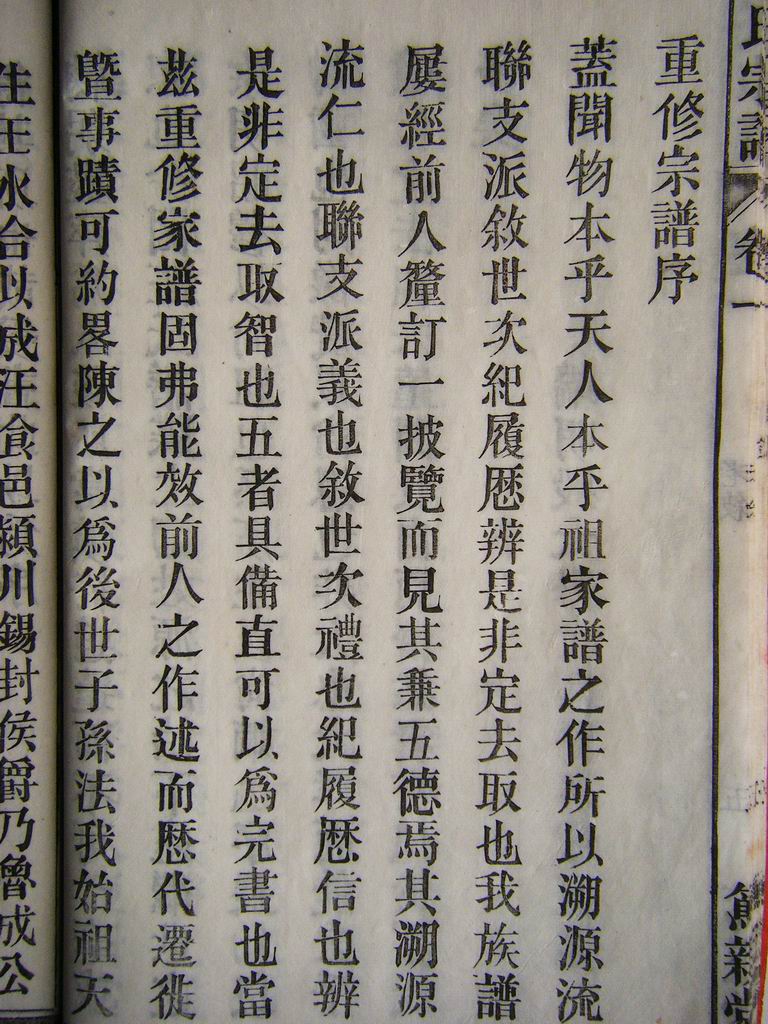 重修宗譜序
蓋聞物本乎天人本乎祖家譜之作所以溯源流
聯支派敘世次紀履歷辨是非定去取也我族譜
屢經前人釐訂一披覽而見其兼五德焉其溯源
流仁也聯支派義也敘世次禮也紀履歷信也辨
是非定去取智也五者具備直可以爲完書也當
茲重修家譜固弗能效前人之作述而歷代遷徙
曁事蹟可約畧陳之以爲後世子孫法我始祖天
生王水合以成汪食邑潁川錫封侯爵乃魯成公
氏宗譜 卷一